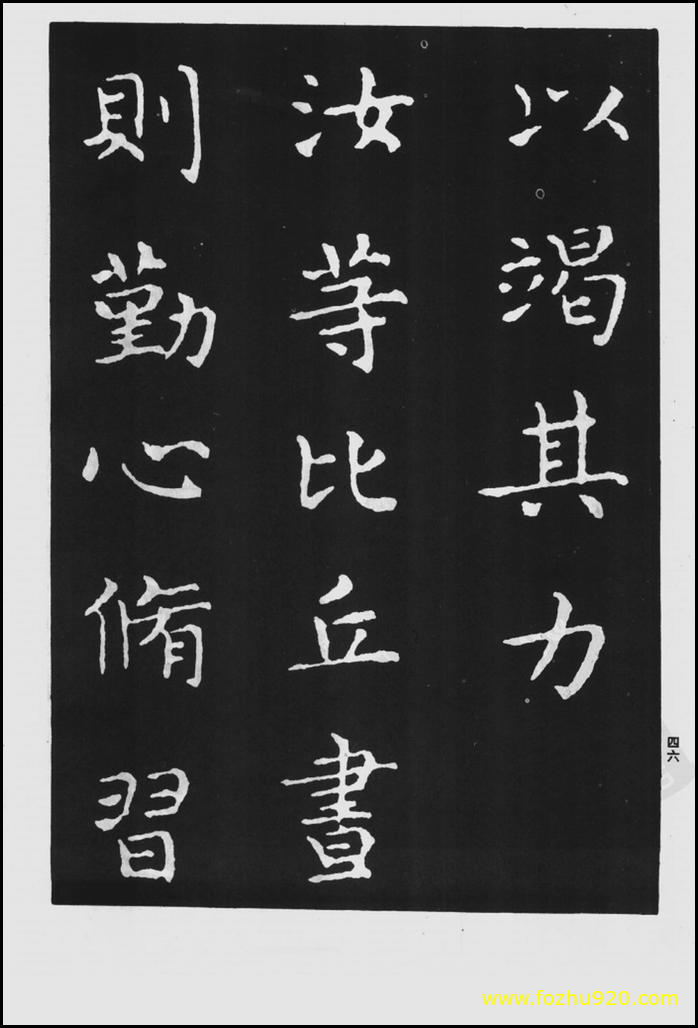 以竭其力
汝等比丘晝
則勤心脩習
四六
www.fozhu920.com